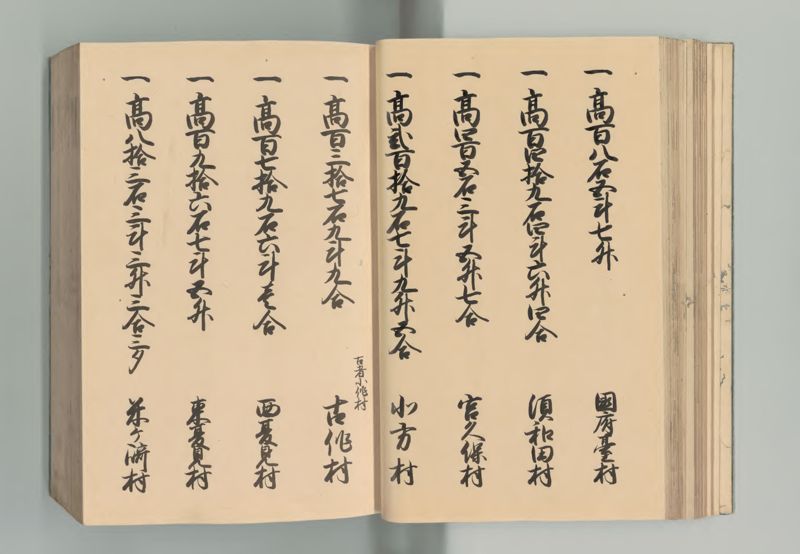 一高百八石五斗七升 國府臺村
一高百四拾九石四斗六升四合 須和田村
一高四百五石三斗五升七合 宮久保村
一高弐百拾九石七斗九升五合 北方村
一高百三拾七石九斗九合 古作村
古者小作村
一高百七拾九石六斗壱合 西夏見村
一高百九拾六石七斗五升 東夏見村
一高八拾三石三斗三升三合三夕 米ヶ崎村